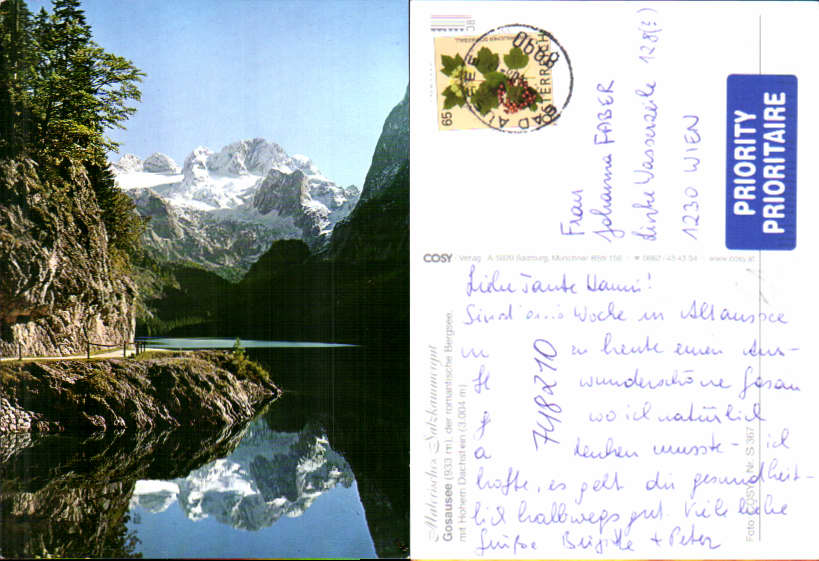 65
ÖSTERREICH
8990
PRIORITY
PRIORITAIRE
Frau
Johanna FABER
Liske Wasserzeile 128(?)
1230 WIEN
COSY Verlag A-5020 Salzburg, Münchner BStr 156 0662/43 43 54 www.cosy.at
Liebe Tante Hanni!
Sind Woche in Altaussee
zu heute einen Aus-
wunderschöne Gosau
wo ich natürlich
denken musste - ich
hoffe, es geht dir gesundheit-
lich halbwegs gut. Viele liebe
Grüße Brigitte + Peter
748210
Malerisches Salzkammergut
Gosausee (933 m), der romantische Bergsee,
mit Hohem Dachstein (3.004 m)
Foto: COSY, Nr. S 367